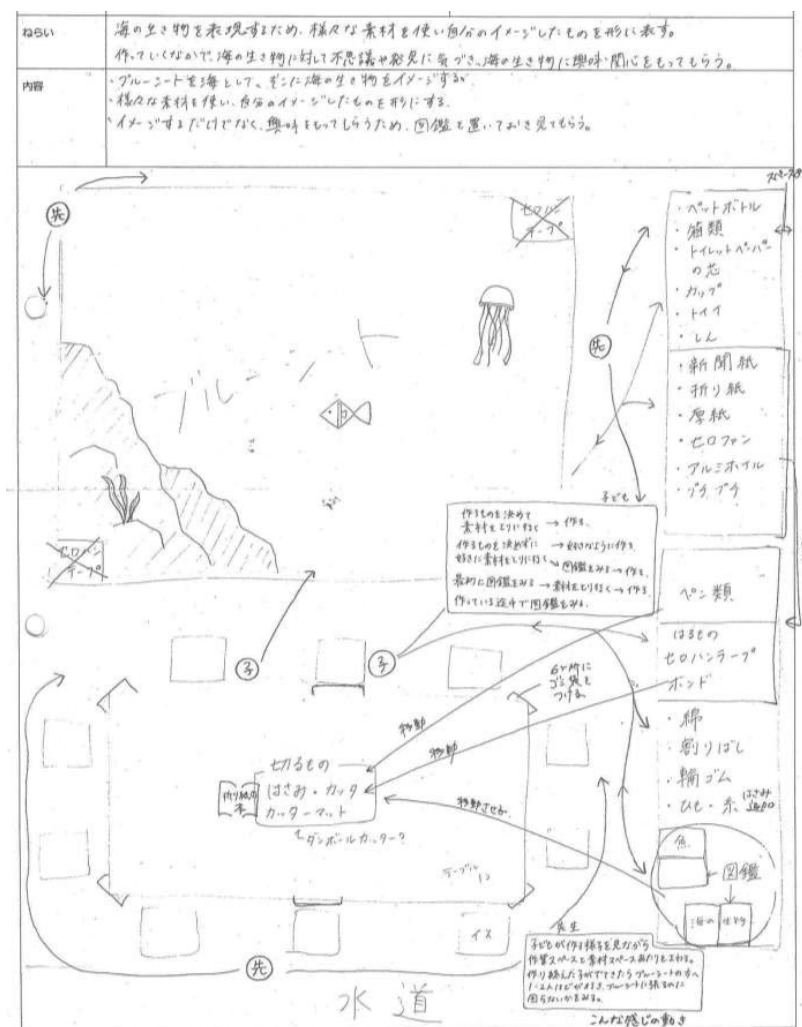 ねらい
海の生き物を表現するため、様々な素材を使い自分のイメージしたものを形に表す。
作っていくなかで、海の生き物に対して不思議や発見に気づき、海の生き物に興味・関心をもってもらう。
内容
・ブルーシートを海として、そこに海の生き物をイメージする。
・様々な素材を使い、自分のイメージしたものを形にする。
・イメージするだけでなく、興味をもってもらうため、図鑑を置いておき見てもらう。
先
セロハン
テープ
ブルーシート
先
・ペットボトル
・箱類
・トイレットペーパー
の芯
・カップ
・トイイ
・しん
・新聞紙
・折り紙
・厚紙
・セロファン
・アルミホイル
・プチプチ
セロハン
テープ
子ども
作るものを決めて
素材をとりに行く → 作る。
作るものを決めずに
好きに素材をとりに行く
→ 好きなように作る
→ 図鑑をみる → 作る。
最初に図鑑をみる → 素材をとり行く → 作る
作っている途中で図鑑をみる。
ペン類
はるもの
セロハンテープ
ボンド
子
子
6ヶ所に
ゴミ袋を
つける
移動
移動
移動させる
・綿
・割りばし
・輪ゴム
・ひも・糸
はさみ
追加
折り紙の
本
切るもの
はさみ・カッタ
カッターマット
ダンボールカッター?
テーブル
イス
魚
図鑑
海の 生き物
先生
子どもが作る様子を見ながら
作業スペースと素材スペースあたりをまわる。
作り終えた子がでてきたらブルーシートの方へ
1・2人ほどが行き、ブルーシートに張るのに
困らないかをみる。
先
水道
こんな感じの動き